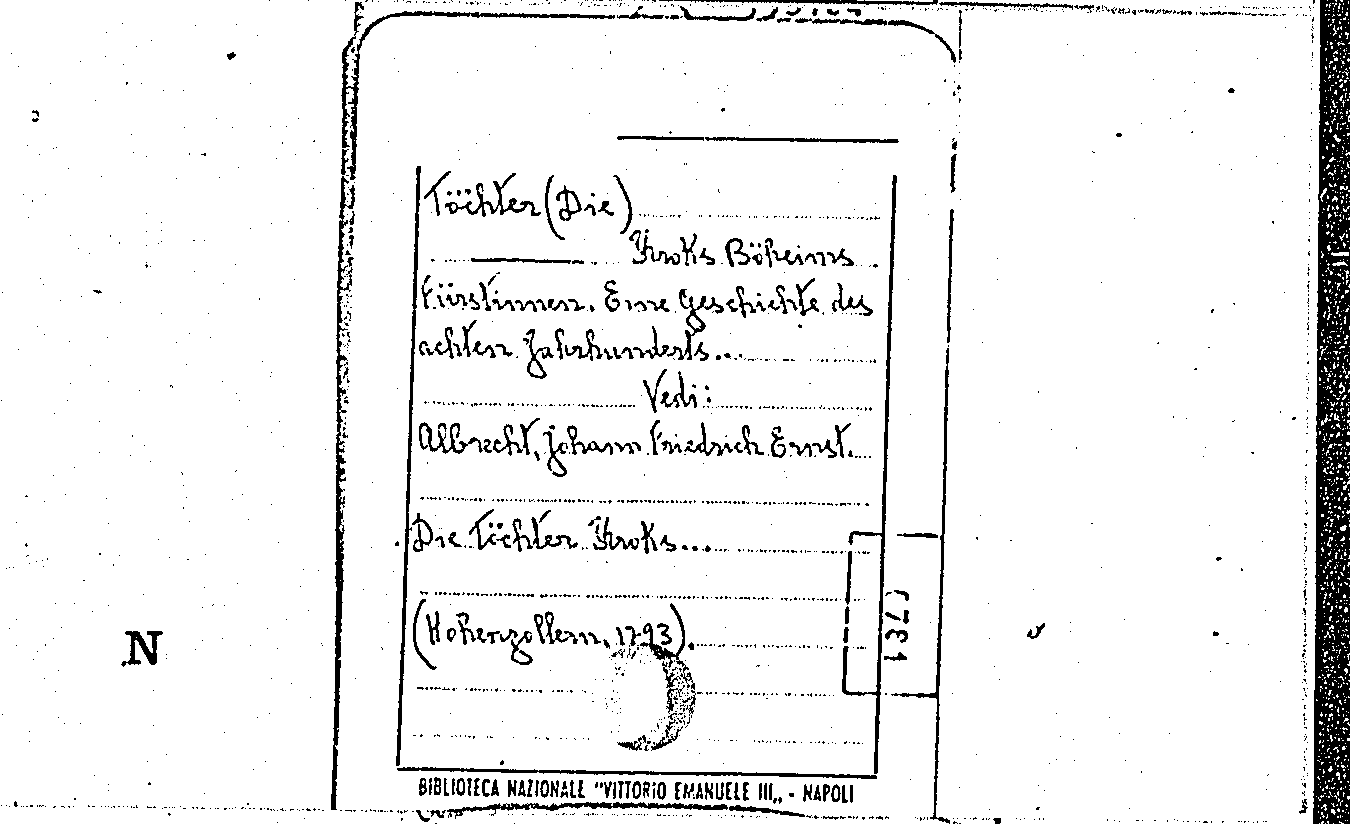 Töchter (Die)
Kroks Böheims
Fürstinnen. Eine Geschichte des
achten Jahrhunderts...
Vedi:
Albrecht, Johann Friedrich Ernst.
Die Töchter Kroks...
(Hohenzollern, 1793).
N
BIBLIOTECA NAZIONALE "VITTORIO EMANUELE III„ - NAPOLI